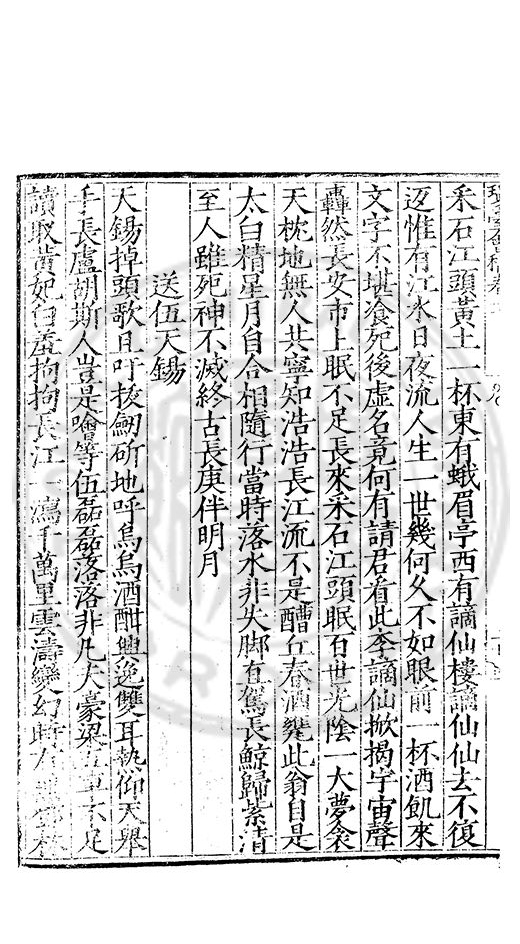 采石江頭黃土一杯東有蛾眉亭西有謫仙樓謫仙仙去不復
返惟有江水日夜流人生一世幾何久不如眼前一杯酒飢來
文字不堪飡死後虛名竟何有請君看此李謫仙掀揭宇宙聲
轟然長安市上眠不足長來采石江頭眠百世光陰一大夢衾
天枕地無人共寧知浩浩長江流不是醩丘春酒甕此翁自是
太白精星月自合相隨行當時落水非失脚直駕長鯨歸紫清
至人雖死神不滅終古長庚伴明月
送伍天錫
天錫掉頭歌且吁拔劒斫地呼烏烏酒酣興逸雙耳熱仰天舉
手長盧胡斯人豈是噲等伍磊磊落落非凡夫濠梁五車不足
讀取黃妃自羞拘拘長江一瀉千萬里雲濤變幻時有